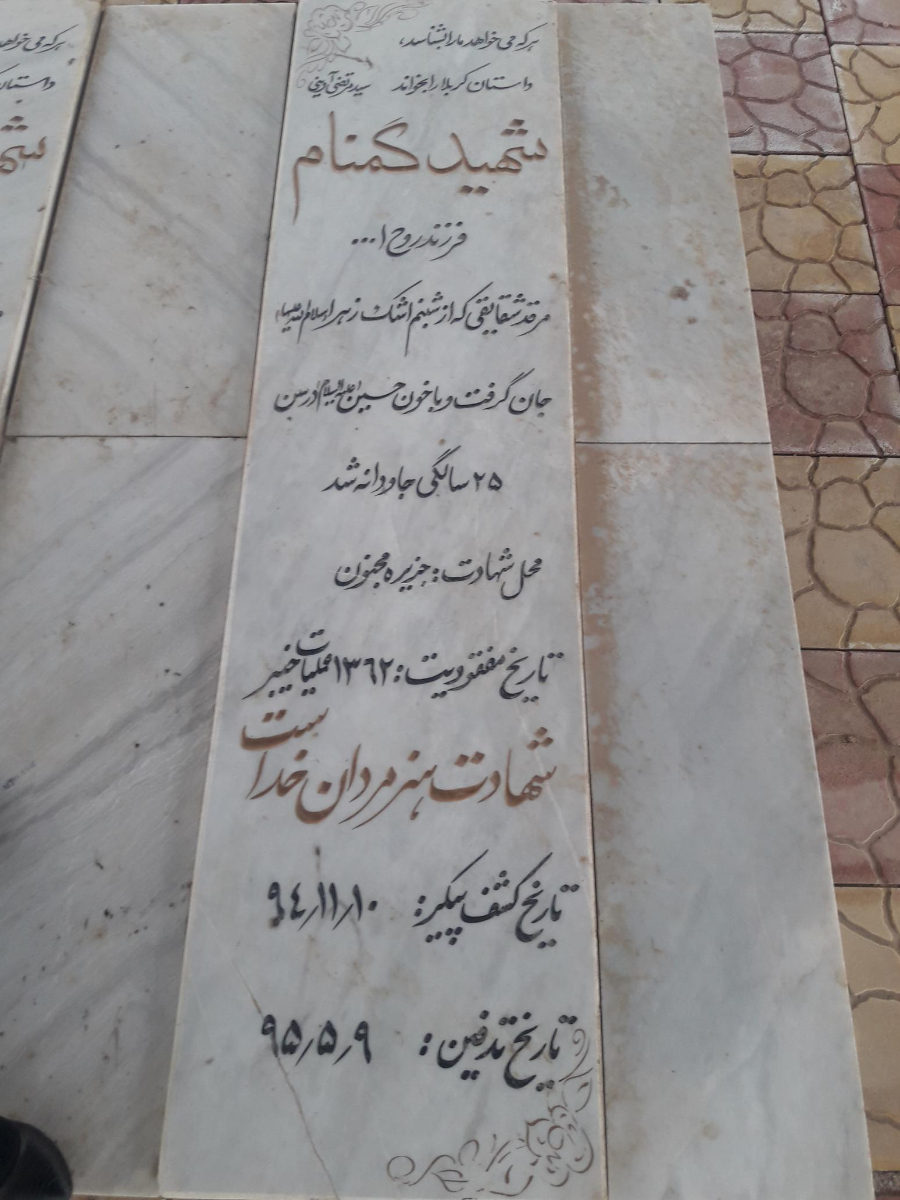 هرکه می خواهد ما را بشناسد،
داستان کربلا را بخواند سید مرتضی آوینی
شهید گمنام
فرزند روح ا...
مرقد شقایقی که از شبنم اشک زهرا(سلام الله علیها)
جان گرفت و با خون حسین(علیه السلام) در سن
۲۵ سالگی جاودانه شد
محل شهادت: جزیره مجنون
تاریخ مفقودیت: ۱۳۶۲ عملیات خیبر
شهادت هنر مردان خداست
تاریخ کشف پیکر: ۹۴٫۱۱٫۱۰
تاریخ تدفین: ۹۵٫۵٫۹
هرکه می خواهد
داستان